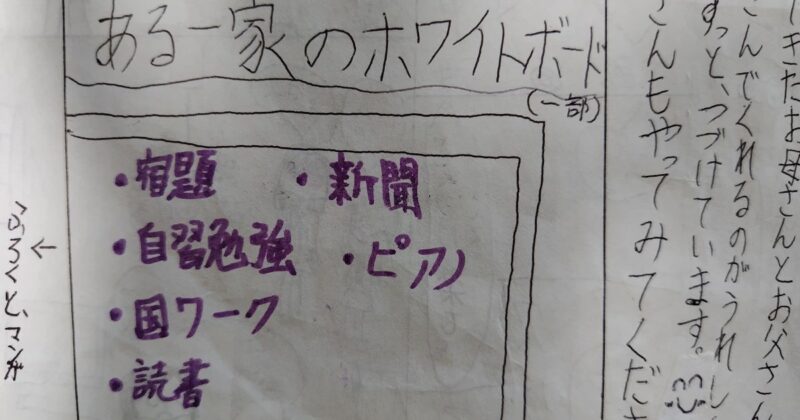 ある一家のホワイトボード
(一部)
・宿題
・自習勉強
・国ワーク
・読書
・新聞
・ピアノ
きたお母さんとお父さん
さんでくれるのがうれし
ずっと、つづけています。
さんもやってみてくださ
←
ふろくと、マンガ